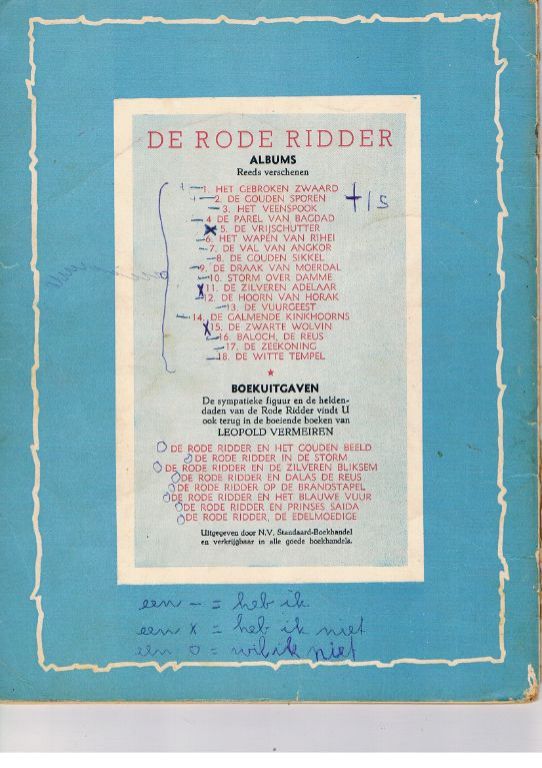 DE RODE RIDDER
ALBUMS
Reeds verschenen
+ – 1. HET GEBROKEN ZWAARD
+ – 2. DE GOUDEN SPOREN
+ 15
– 3. HET VEENSPOOK
– 4 DE PAREL VAN BAGDAD
x 5. DE VRIJSCHUTTER
– 6. HET WAPEN VAN RIHEI
– 7. DE VAL VAN ANGKOR
– 8. DE GOUDEN SIKKEL
– 9. DE DRAAK VAN MOERDAL
– 10. STORM OVER DAMME
x 11. DE ZILVEREN ADELAAR
– 12. DE HOORN VAN HORAK
– 13. DE VUURGEEST
– 14. DE GALMENDE KINKHOORNS
x 15. DE ZWARTE WOLVIN
– 16. BALOCH, DE REUS
– 17. DE ZEEKONING
– 18. DE WITTE TEMPEL
BOEKUITGAVEN
De sympatieke figuur en de helden-
daden van de Rode Ridder vindt U
ook terug in de boeiende boeken van
LEOPOLD VERMEIREN
O DE RODE RIDDER EN HET GOUDEN BEELD
O DE RODE RIDDER IN DE STORM
O DE RODE RIDDER EN DE ZILVEREN BLIKSEM
O DE RODE RIDDER EN DALAS DE REUS
O DE RODE RIDDER OP DE BRANDSTAPEL
O DE RODE RIDDER EN HET BLAUWE VUUR
O DE RODE RIDDER EN PRINSES SAIDA
O DE RODE RIDDER, DE EDELMOEDIGE
Uitgegeven door N.V. Standaard-Boekhandel
en verkrijgbaar in alle goede boekhandels.
een – = heb ik
een x = heb ik niet
een o = wil ik niet